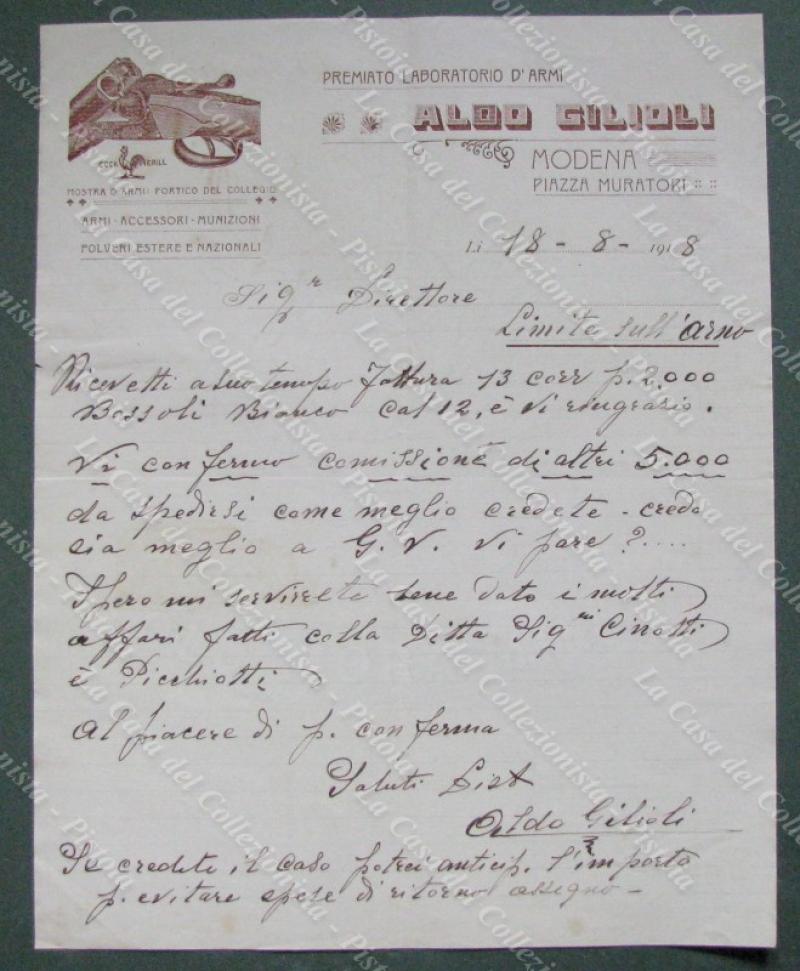 PREMIATO LABORATORIO D'ARMI
ALDO GILIOLI
MODENA
PIAZZA MURATORI
COCK ERILL
MOSTRA D'ARMI: PORTICO DEL COLLEGIO
ARMI - ACCESSORI - MUNIZIONI
POLVERI ESTERE E NAZIONALI
Li 18 - 8 - 1918
Sigr Direttore
Limite sull'arno
Ricevetti a suo tempo fattura 13 corr p. 2.000
Bossoli Bianco cal 12, è vi ringrazio.
Vi confermo comissione di altri 5.000
da spedirsi come meglio credete - credo
sia meglio a G. V. vi pare ?....
Spero mi servirete bene dato i molti
affari fatti colla Ditta Sigri Cinotti
è Picchiotti
Al piacere di p. conferma
Saluti Dist
Aldo Gilioli
Se credete il caso potrei anticip. l'importo
p. evitare spese di ritorno assegno -
La Casa del Collezionista - Pistoia